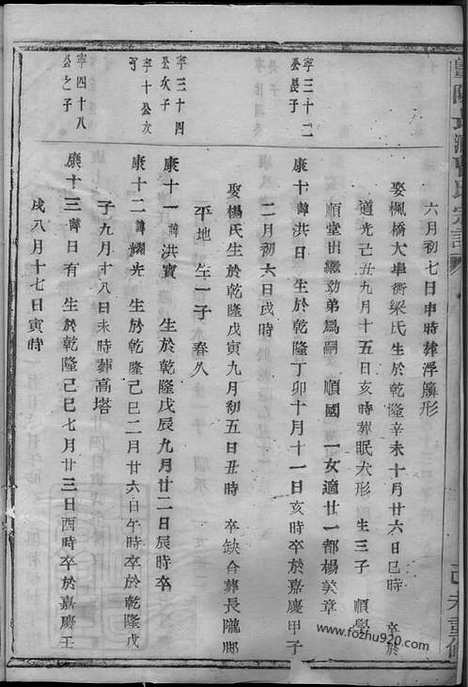 六月初七日申時葬浮牌形
娶楓橋大串衝梁氏生於乾隆辛未十月廿六日巳時 卒於
道光己丑九月十五日亥時葬眠犬形 生三子 順學
順堂出繼勁弟爲嗣 順國 一女適廿一都楊美章
寧三十二公長子
康十諱洪日 生於乾隆丁卯十月十一日亥時卒於嘉慶甲子
二月初六日戌時
娶楊氏生於乾隆戊寅九月初五日丑時 卒缺合葬長隴鄅
平地 生一子 春久
寧三十四公次子
康十一諱洪寶 生於乾隆戊辰九月廿二日辰時卒
寧十公次子
康十二諱耀光 生於乾隆己巳二月廿六日午時卒於乾隆戊
子九月十八日未時葬高塔
寧四十八公之子
康十三諱日有 生於乾隆己巳七月廿三日酉時卒於嘉慶壬
戌八月十七日寅時
氏宗譜
己未重修
www.fozhu920.com